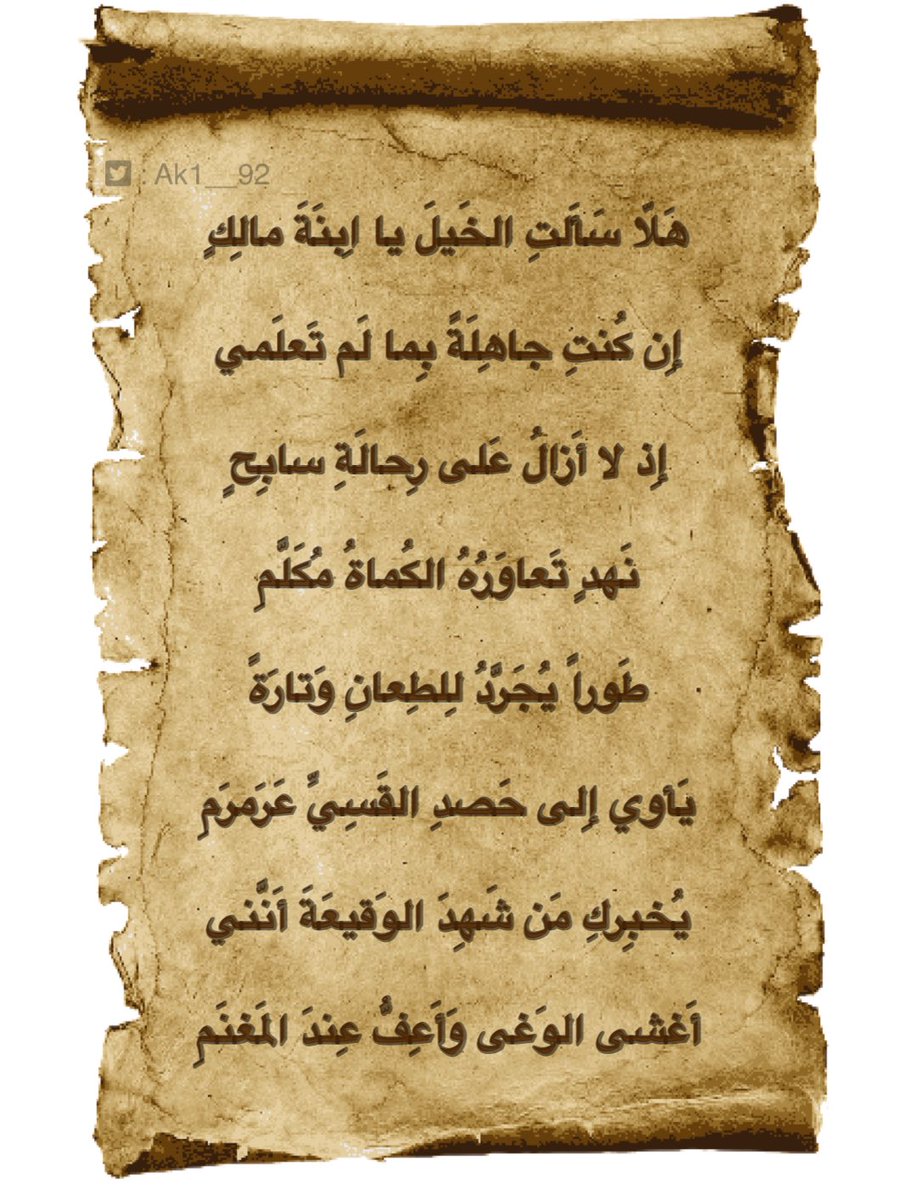 : Ak1__92
هَلّا سَأَلتِ الخَيلَ يا اِبنَةَ مالِكٍ
إِن كُنتِ جاهِلَةً بِما لَم تَعلَمي
إِذ لا أَزالُ عَلى رِحالَةِ سابِحٍ
نَهدٍ تَعاوَرُهُ الكُماةُ مُكَلَّمِ
طَوراً يُجَرَّدُ لِلطِعانِ وَتارَةً
يَأوي إِلى حَصدِ القَسِيِّ عَرَمرَمِ
يُخبِركِ مَن شَهِدَ الوَقيعَةَ أَنَّني
أَغشى الوَغى وَأَعِفُّ عِندَ المَغنَمِ